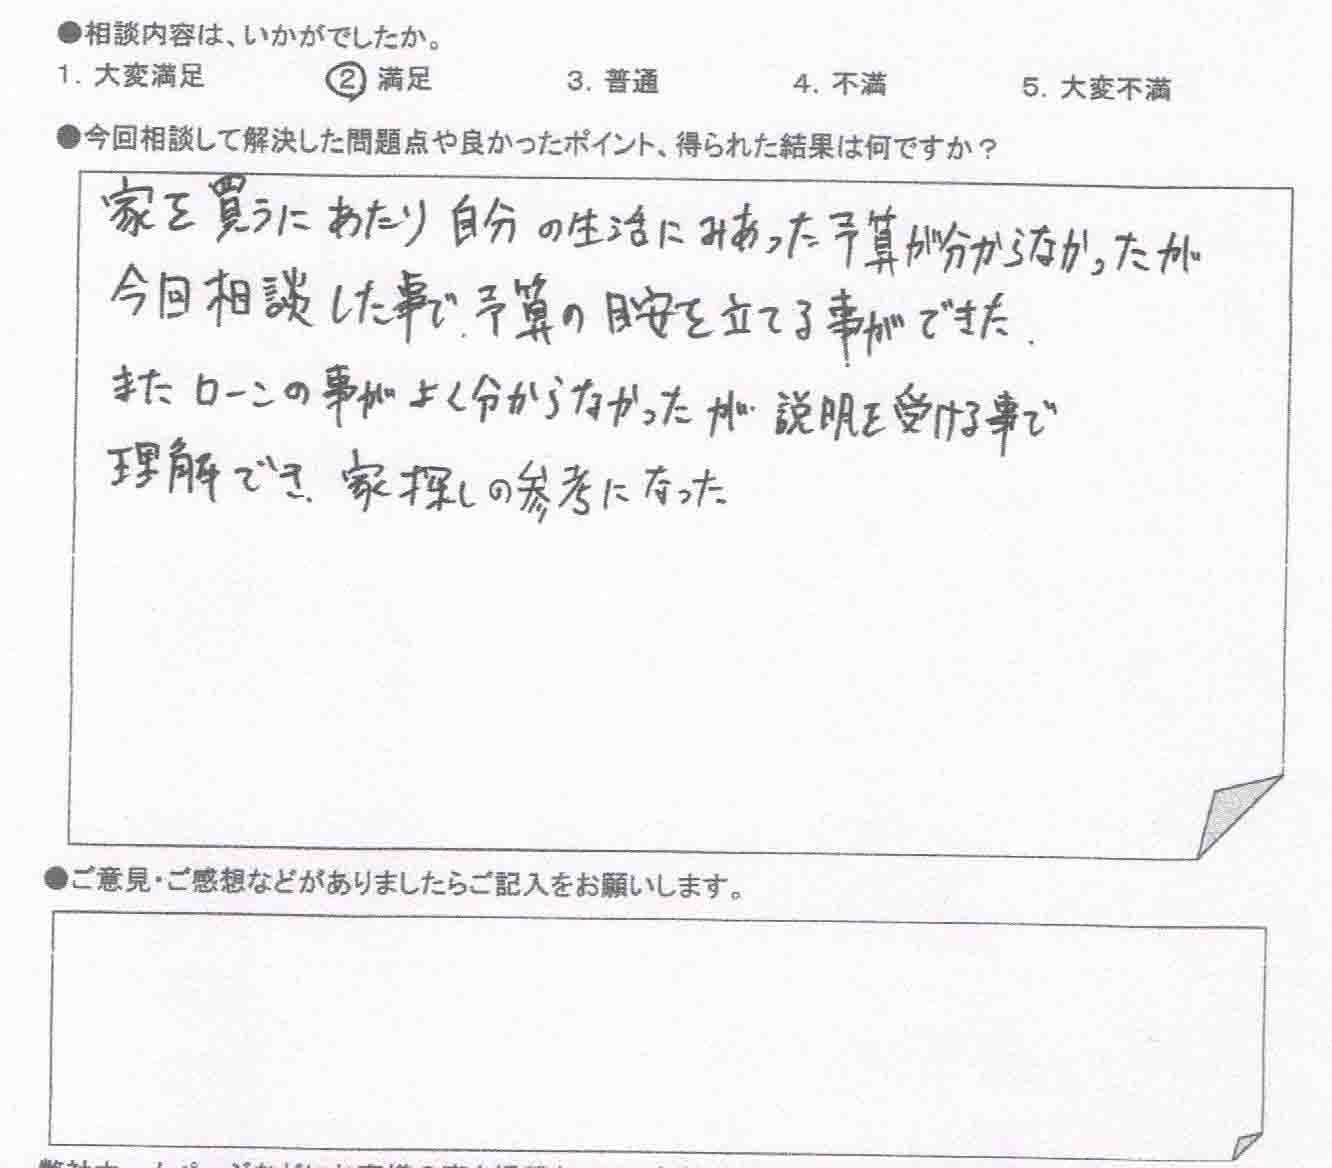 ●相談内容は、いかがでしたか。
1. 大変満足 2 満足 3. 普通 4. 不満 5. 大変不満
●今回相談して解決した問題点や良かったポイント、得られた結果は何ですか?
家を買うにあたり 自分の生活にみあった予算が分からなかったが
今回相談した事で、予算の目安を立てる事ができた.
またローンの事がよく分からなかったが 説明を受ける事で
理解でき、家探しの参考になった
●ご意見・ご感想などがありましたらご記入をお願いします。